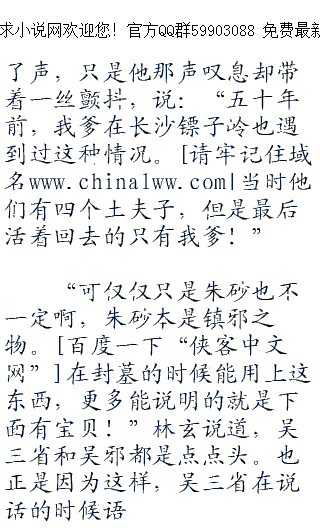 求小说网欢迎您！官方QQ群59903088 免费最新
了声，只是他那声叹息却带
着一丝颤抖，说：“五十年
前，我爹在长沙镖子岭也遇
到过这种情况。[请牢记住域
名www.china1ww.com|当时他
们有四个土夫子，但是最后
活着回去的只有我爹！”
“可仅仅只是朱砂也不
一定啊，朱砂本是镇邪之
物。[百度一下“侠客中文
网”]在封墓的时候能用上这
东西，更多能说明的就是下
面有宝贝！”林玄说道，吴
三省和吴邪都是点点头。也
正是因为这样，吴三省在说
话的时候语